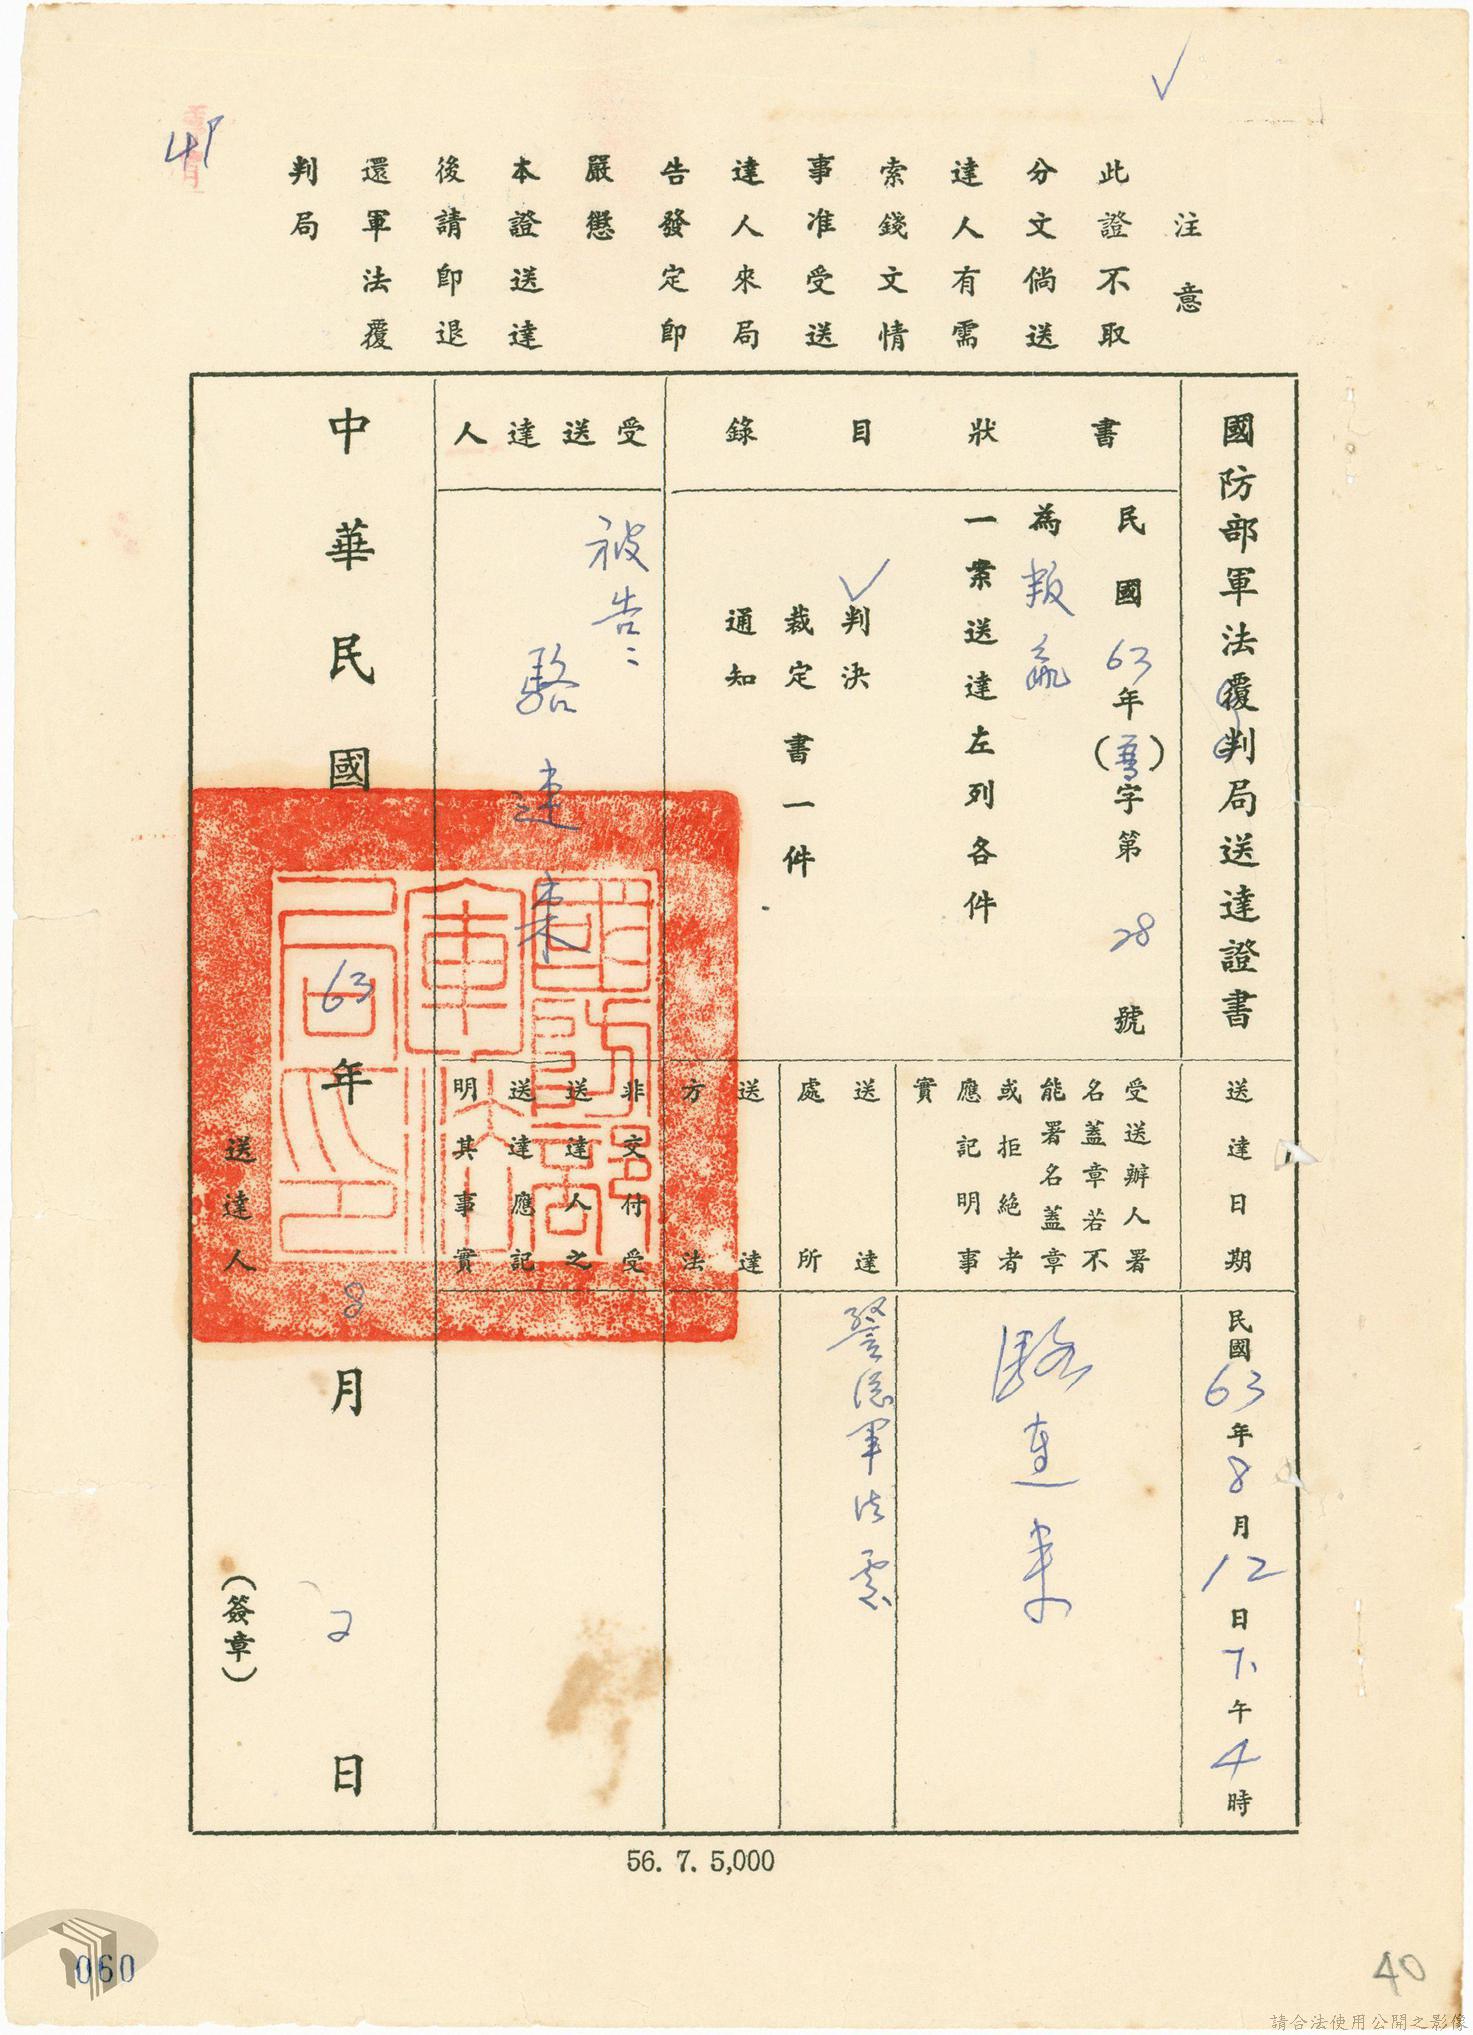 注意
此證不取
分文倘送
達人有需
索錢文情
事准受送
達人來局
告發定即
嚴懲
本證送達
後請即退
還軍法覆
判局
國防部軍法覆判局送達證書
書狀目錄
民國63年(　)字第28號
為叛亂
一案送達左列各件
判決
裁定書一件
通知
受送達人
被告
駱連來
送達日期
民國63年8月12日下午4時
受送辦人署
名蓋章若不
能署名蓋章
或拒絕者
應記明事
實
駱連來
送達
處所
警總軍法處
送達
方法
非交付受
送達人之
送達應記
明其事實
中華民國63年8月2日
送達人
(簽章)
56. 7. 5,000
060
40
請合法使用公開之影像